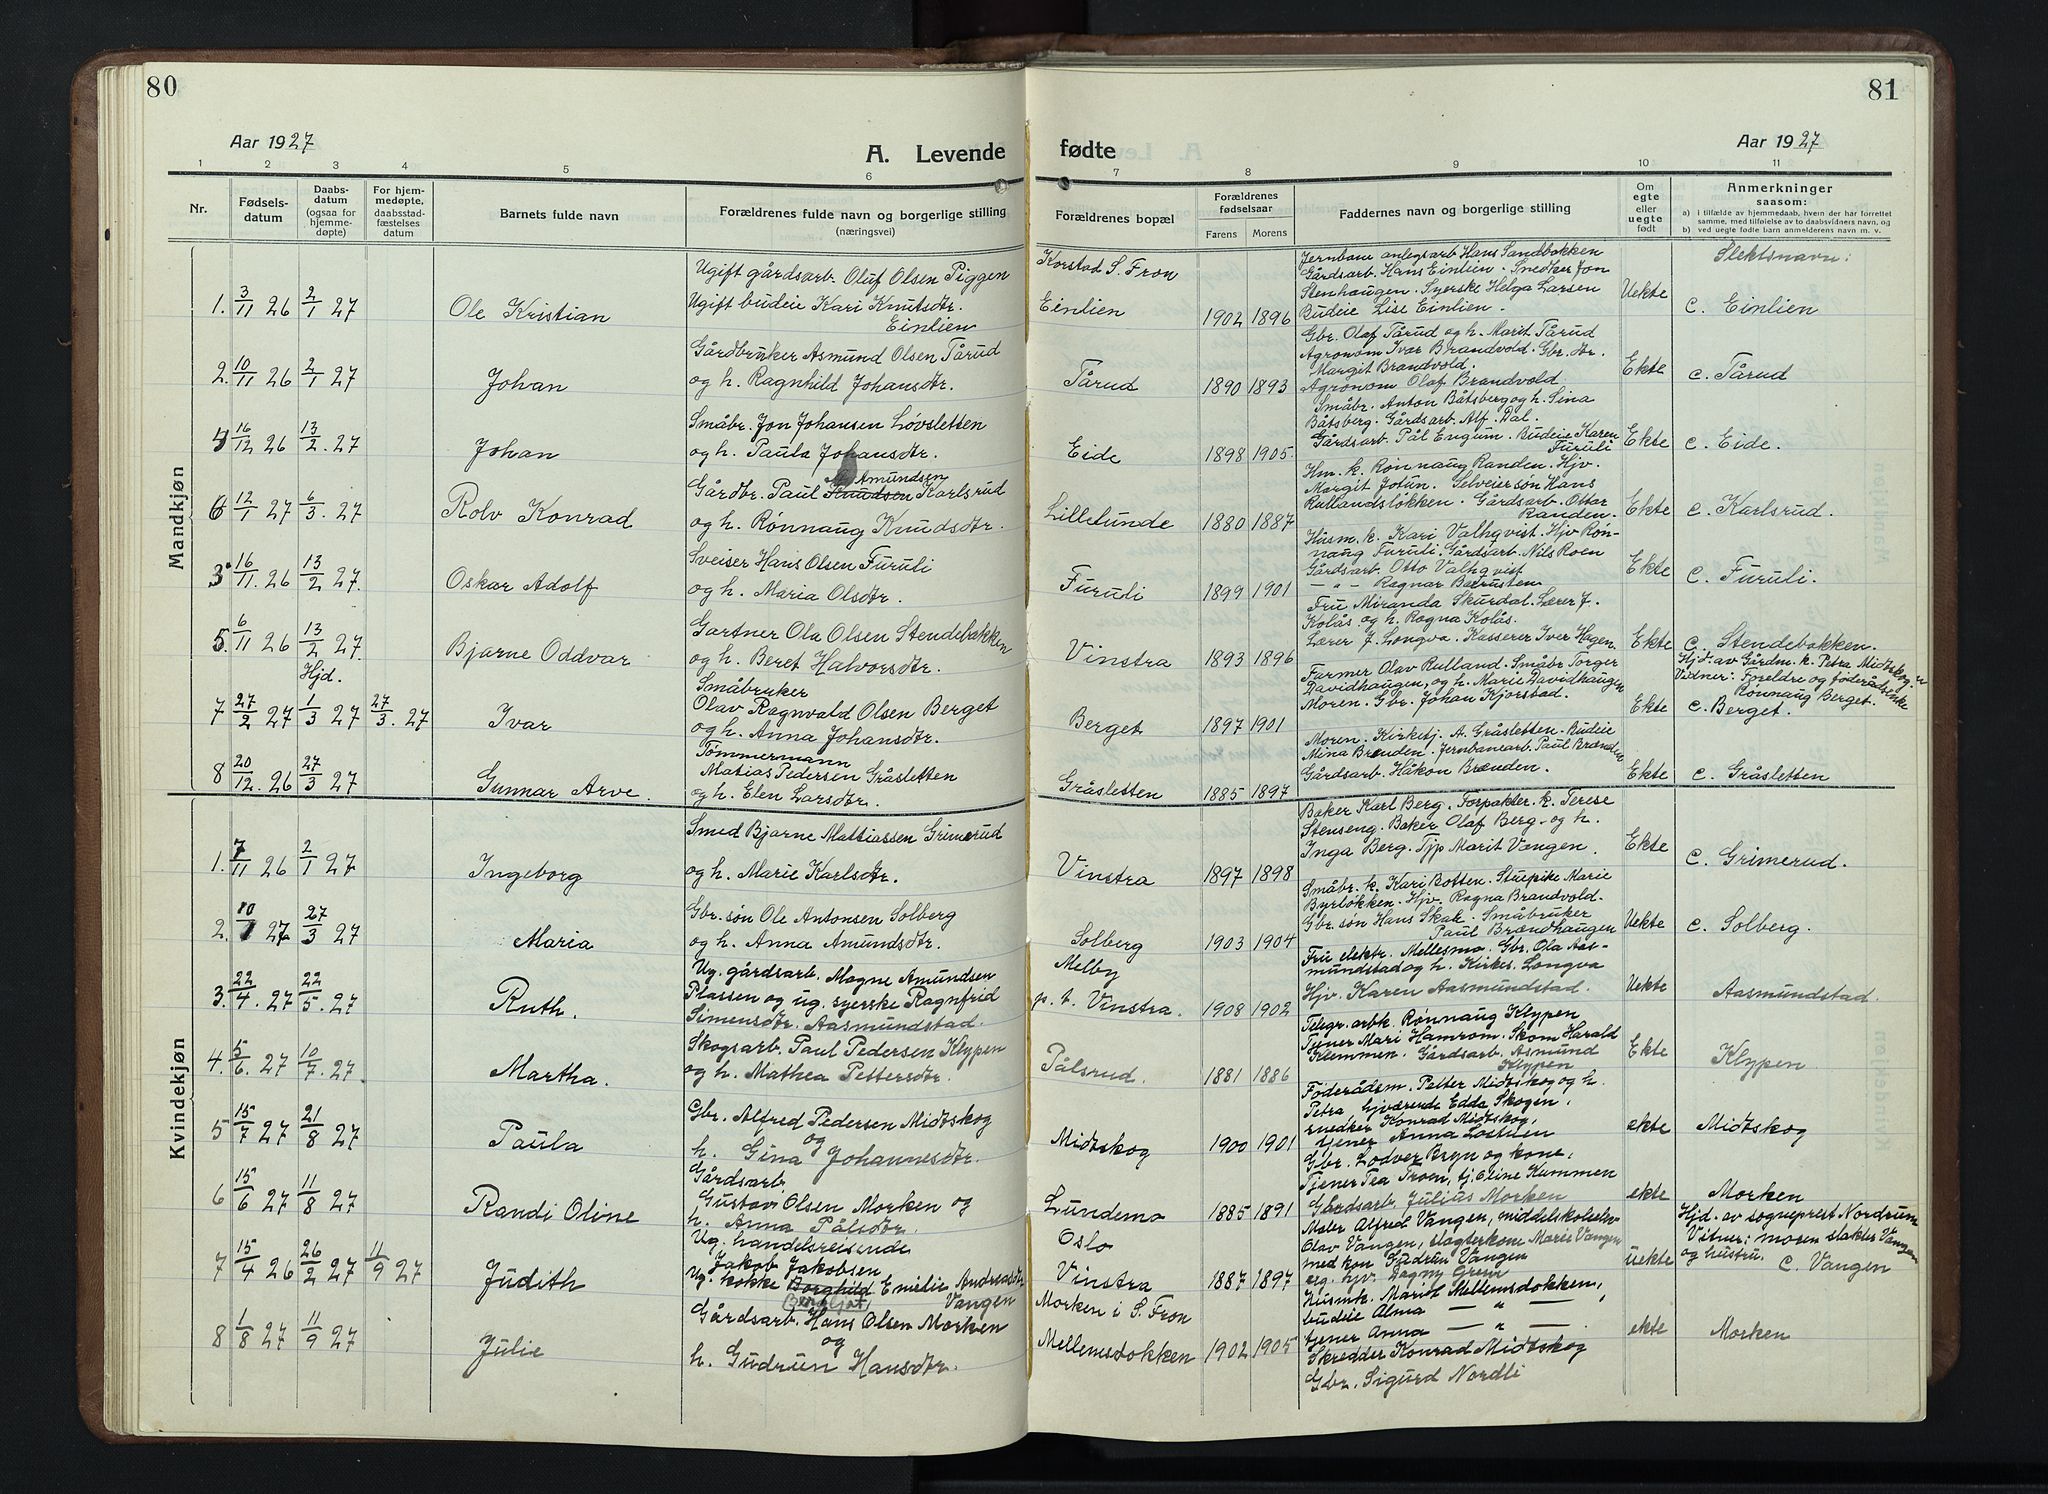 80
81
Aar 1927
A. Levende
fødte
Aar 1927
1 2 3 4 5 6 7 8 9 10 11
Nr.
Fødsels-
datum
Daabs-
datum
(ogsaa for
hjemme-
døpte)
For hjem-
medøpte,
daabsstad-
fæstelses
datum
Barnets fulde navn
Forældrenes fulde navn og borgerlige stilling
(næringsvei)
Forældrenes bopæl
Forældrenes
fødselsaar
Farens Morens
Faddernes navn og borgerlige stilling
Om
egte
eller
uegte
født
Anmerkninger
saasom:
a) i tilfælde av hjemmedaab, hvem der har forrettet
samme, med tilføielse av to daabsvidners navn, og
b) ved uegte fødte barn anmelderens navn m. v.
Slektsnavn:
Mandkjøn
1. 3/11 26 2/1 27
Ole Kristian
Ugift gårdsarb. Oluf Olsen Piggen
Ugift budeie Kari Knutsdtr.
Einlien
Korstad S. Fron
Einlien
1902 1896
Jernbane anlegsarb Hans Sandbakken
Gårdsarb. Hans Einlien. Snedker Jon
Stenhaugen. Syerske Helga Larsen
Budeie Lise Einlien.
Uekte
c. Einlien
2. 10/11 26 2/1 27
Johan
Gårdbruker Asmund Olsen Tårud
og h. Ragnhild Johansdtr.
Tårud
1890 1893
Gbr. Olaf Tårud og h. Marit Tårud
Agronom Ivar Brandvold. Gbr. dtr.
Margit Brandvold.
Agronom Olaf Brandvold
Ekte
c. Tårud
4 16/12 26 13/2. 27
Johan
Småbr. Jon Johansen Løvsletten
og h. Paula Johansdtr.
Eide
1898 1905.
Småbr. Anton Båtsberg og h. Sina
Båtsberg. Gårdsarb. Alf. Dal.
Gårdsarb. Pål Engum. Budeie Karen
Furuli
Ekte
c. Eide.
6 12/1 27 6/3. 27
Rolv Konrad
Amundsen
Gårdbr. Paul Knudsen Karlsrud
og h. Rønnaug Knudsdtr.
Lillelunde
1880 1887
Hm. k. Rønnaug Randen. Hjv.
Margit Jotun. Selveiersøn Hans
Rullandsløkken. Gårdsarb. Ottar
Randen.
Ekte
c. Karlsrud.
3. 16/11. 26 13/2 27.
Oskar Adolf
Sveiser Hans Olsen Furuli
og h. Maria Olsdtr.
Furuli
1899 1901
Husm. k. Kari Valhqvist. Hjv Røn-
naug Furuli. Gårdsarb. Nils Roen
Gårdsarb. Otto Valhqvist
— " — Ragnar Bærusten
Ekte
c. Furuli.
5. 6/11 26 13/2 27.
Bjarne Oddvar
Gartner Ola Olsen Stendebakken
og h. Beret Halvorsdtr.
Vinstra
1893 1896
Fru Miranda Skurdal. Lærer J.
Kolås og h. Ragna Kolås.
Lærer J. Longva. Kasserer Iver Hagen
Ekte
c. Stendebakken.
Hjd.
7 27/2 27 1/3 27 27/3. 27
Ivar
Småbruker
Olav Ragnvald Olsen Berget
og h. Anna Johansdtr.
Berget
1897 1901
Farmer Olav Rulland. Småbr Torger
Davidhaugen, og h. Marie Davidhaugen
Moren. Gbr. Johan Kjorstad.
Ekte
Hjd. av Gårdm. k. Petra Midtskogen
Vidner: Foreldre og føderådsenke
Rønnaug Berget.
c. Berget.
8 20/12. 26 27/3 27
Gunnar Arve.
Tømmermann
Matias Pedersen Gråsletten
og h. Elen Larsdtr.
Gråsletten
1885 1897
Moren. Kirketj. A. Gråsletten. Budeie
Mina Brænden. Jernbanearb. Paul Brænden
Gårdsarb. Håkon Brænden.
Ekte
c. Gråsletten
Kvindekjøn
1. 7/11 26 2/1 27
Ingeborg
Smed Bjarne Mattiassen Grimerud
og h. Marie Karlsdtr.
Vinstra
1897 1898
Baker Karl Berg. Forpakter. k. Terese
Stenseng. Baker Olaf Berg. og h.
Inga Berg. Tjp Marit Vangen.
Ekte
c. Grimerud.
2. 27 27/3 27
Maria
Gbr. søn Ole Antonsen Solberg
og h. Anna Amundsdtr.
Solberg
1903 1904
Småbr. k. Kari Botten. Stuepike Marie
Byrløkken. Hjv. Ragna Brandvold.
Gbr. søn Hans Skak. Småbruker
Paul Brændhaugen
Uekte
c. Solberg.
3. 22/4. 27 22/5. 27
Ruth.
Ug. gårdsarb. Magne Amundsen
Plassen og ug. syerske Ragnfrid
Simensdtr. Aasmundstad.
Melby
p. t. Vinstra.
1908 1902
Fru elektr. Mellesmo. Gbr. Ola Aas-
mundstad og h. Kirkes. Longva
Hjv. Karen Aasmundstad.
Uekte
Aasmundstad.
4. 5/6. 27 10/7. 27
Martha.
Skogsarb. Paul Pedersen Klypen
og h. Mathea Pettersdtr.
Pålsrud.
1881 1886
Telegr. arbk. Rønnaug Klypen
Tjener Mari Hamrom. Skom Harald
Klemmen. Gårdsarb. Asmund
Klypen
Ekte
Klypen
5 15/7 27 21/8 27
Paula
Gbr. Alfred Pedersen Midtskog
og
h. Gina Johannesdtr.
Midtskog
1900 1901
Føderådsm. Petter Midtskog og h.
Petra hjværende Edda Skogen,
snedker Konrad Midtskog,
tjener Anna Lostuen
ekte
Midtskog
6 15/6 27 11/8 27
Randi Oline
Gårdsarb
Gustav Olsen Morken og
h. Anna Pålsdtr.
Lundemo
1885 1891
Gbr. Lodver Bryn og kone,
Tjener Tea Trom, tj. Oline Kummen
Gårdsarb Julius Morken
ekte
Morken
7 15/4 26 26/2 27 11/9 27
Judith
Ug. handelsreisende
Jakob Jakobsen
Ug. kokke Borghild Emelie Andreasdtr
Bergljot Vangen
Oslo
Vinstra
1887 1897
Maler Alfred Vangen, middelskoleelev
Olav Vangen, slagterkone Marie Vangen
med kon Gudrun Vangen
eg. hjv. Dagny Grem
uekte
Hjd. av sogneprest Nordrum
Vitner: moren slakter Vangen
og hustru. c. Vangen
8 1/8 27 11/9 27
Julie
Gårdsarb. Hans Olsen Morken
og
h. Gudrun Hansdtr.
Morken i S. Fron
Mellemsdokken
1902 1905
Husmk. Marit Mellemsdokken,
budeie Alma — " —,
tjener Anna — " —.
Skredder Konrad Midtskog
Gbr. Sigurd Nordli
ekte
Morken